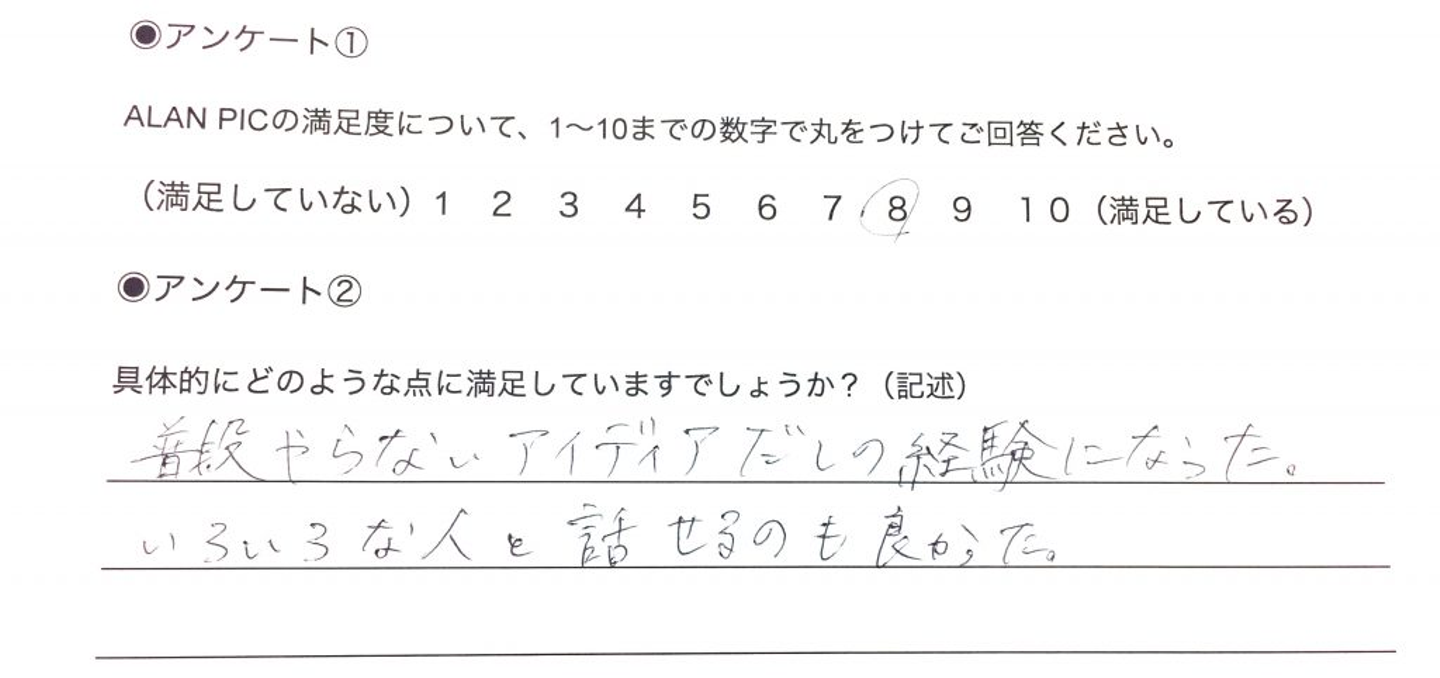 ◉アンケート①
ALAN PICの満足度について、1〜10までの数字で丸をつけてご回答ください。
（満足していない）1 2 3 4 5 6 7 8 9 10（満足している）
◉アンケート②
具体的にどのような点に満足していますでしょうか？（記述）
普段やらないアイディアだしの経験になった。
いろいろな人と話せるのも良かった。